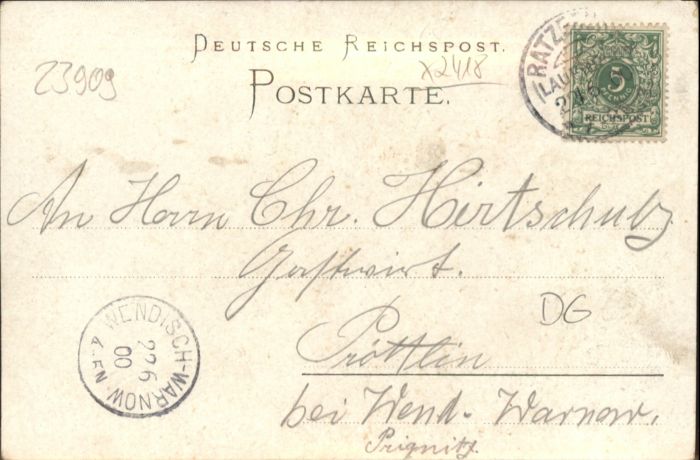 DEUTSCHE REICHSPOST.
23909
X2418
POSTKARTE.
RATZE
LAU
5
REICHSPOST
An Herrn Chr. Hirtschulz
Gastwirt.
DG
WENDISCH-WARNOW
22 6
00
4-5N
Pröttlin
bei Wend. Warnow.
Prignitz.